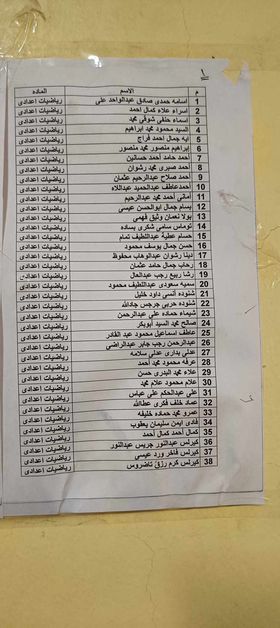 ١
م الاسم المادة
1 اسامه حمدى صادق عبدالواحد على رياضيات اعدادى
2 اسراء علاء كمال احمد رياضيات اعدادى
3 اسماء حنفى شوقى محمد رياضيات اعدادى
4 السيد محمود محمد ابراهيم رياضيات اعدادى
5 ايه جمال احمد فراج رياضيات اعدادى
6 ابراهيم منصور محمد منصور رياضيات اعدادى
7 أحمد حامد أحمد حسانين رياضيات اعدادى
8 أحمد صبرى محمد رشوان رياضيات اعدادى
9 أحمد صلاح عبدالرحيم عثمان رياضيات اعدادى
10 أحمدعاطف عبدالحميد عبداللاه رياضيات اعدادى
11 أمانى أحمد محمد عبدالرحيم رياضيات اعدادى
12 بسام جمال ابوالحسن عيسى رياضيات اعدادى
13 بولا نعمان وثيق فهمى رياضيات اعدادى
14 توماس سامى شكرى بساده رياضيات اعدادى
15 حسام عطية عبداللطيف تمام رياضيات اعدادى
16 حسن جمال يوسف محمود رياضيات اعدادى
17 دينا رشوان عبدالوهاب محفوظ رياضيات اعدادى
18 رحاب جمال حامد عثمان رياضيات اعدادى
19 رشا ربيع رجب عبدالعال رياضيات اعدادى
20 سميه سعودى عبداللطيف محمود رياضيات اعدادى
21 شنوده أنسى داود خليل رياضيات اعدادى
22 شنوده حربى جرجس جادالله رياضيات اعدادى
23 شيماء حماده على عبدالرحمن رياضيات اعدادى
24 صالح محمد السيد أبوبكر رياضيات اعدادى
25 عاطف اسماعيل محمود عبد القادر رياضيات اعدادى
26 عبدالرحمن رجب جابر عبدالراضى رياضيات اعدادى
27 عدلى بدارى عدلى سلامه رياضيات اعدادى
28 عرفه محمود محمد أحمد رياضيات اعدادى
29 علاء محمد البدرى حسن رياضيات اعدادى
30 علام محمود علام محمد رياضيات اعدادى
31 على عبدالحكم على عباس رياضيات اعدادى
32 عماد خلف فكرى عطاالله رياضيات اعدادى
33 عمرو محمد حماده خليفه رياضيات اعدادى
34 فادى ايمن سليمان يعقوب رياضيات اعدادى
35 كمال أحمد كمال أحمد رياضيات اعدادى
36 كيرلس عبدالنور جريس عبدالنور رياضيات اعدادى
37 كيرلس فاخر ورد عيسى رياضيات اعدادى
38 كيرلس كرم رزق تاضروس رياضيات اعدادى